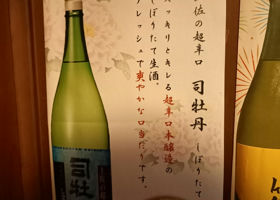 佐の超辛口 司牡丹 しぼりたて
スッキリとキレる超辛口本醸造の
しぼりたて生酒。
フレッシュで爽やかな口当たりです。
司牡